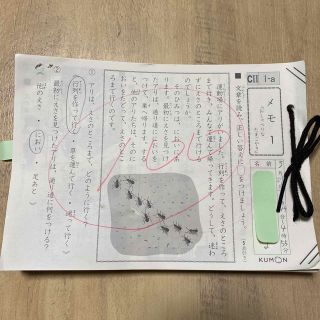 CⅡ 1-a
メモ 1
文章を読んで、正しい答えに○をつけましょう。
運動場にアリがいます。
行列を作って、えさのところ
まで行き、みんなで運んで帰ってきます。どうして、迷わ
ずにえさのところまで行ける
のでしょうか。
そのひみつは、においにあ
ります。最初にえさを見つけ
たアリは、通り道ににおいを
つけて、巣へ帰ります。する
と、他のアリたちは、そのに
おいをたどって、えさのとこ
ろまで行くのです。
① アリは、えさのところまで、どのように行く？
行列を作って行く ・ 草を運んで行く ・ 迷って行く
② 最初にえさを見つけたアリは、通り道に何をつける？
他のえさ ・ におい ・ 足あと
100
KUMON